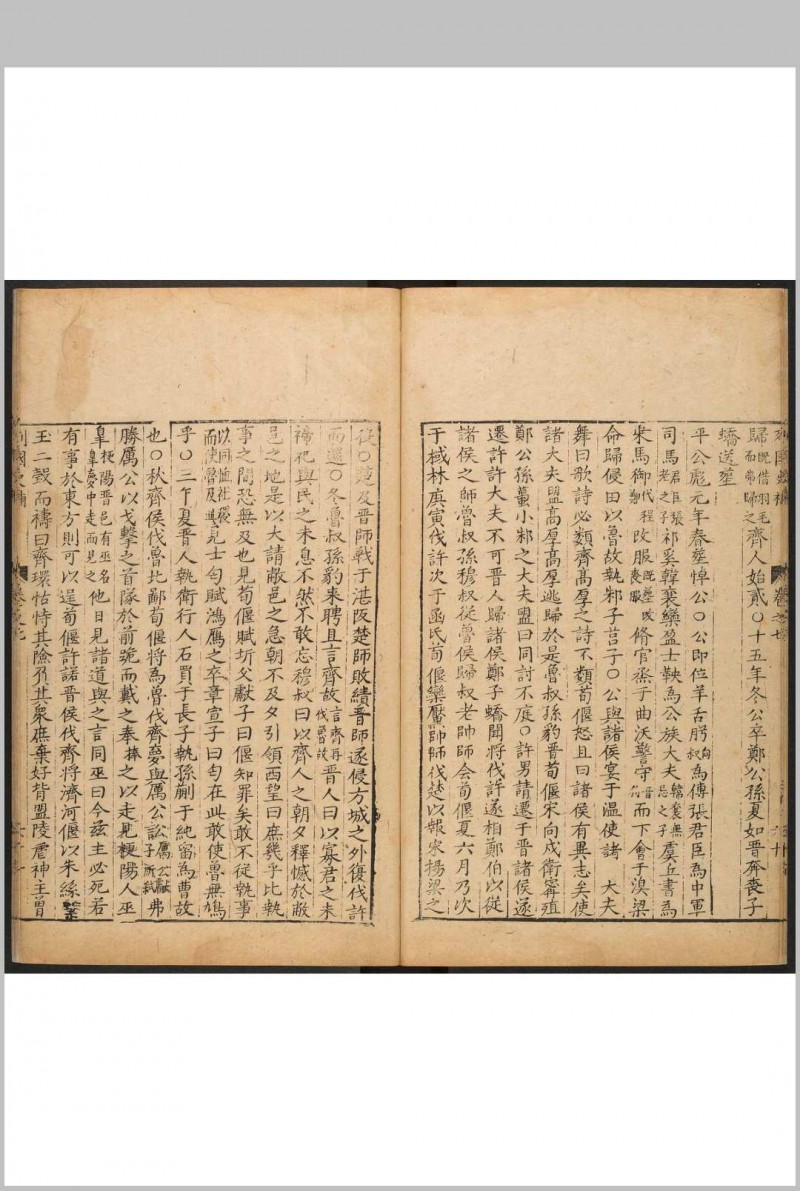 歸既借羽毛而弗歸之齊人始貳〇十五年冬公卒鄭公孫夏如晉奔喪子
蟜送葬
平公彪元年春葬悼公〇公即位羊舌肸叔向為傅張君臣為中軍
司馬君臣張老之子祁奚韓襄欒盈士鞅為公族大夫韓襄無忌之子虞丘書為
乘馬御代程鄭改服既葬改喪服脩官烝于曲沃警守而下會于溴梁
命歸侵田以魯故執邾子莒子〇公與諸侯宴于温使諸大夫
舞曰歌詩必類齊高厚之詩不類荀偃怒且曰諸侯有異志矣使
諸大夫盟高厚高厚逃歸於是魯叔孫豹晉荀偃宋向戌衛甯殖
鄭公孫蠆小邾之大夫盟曰同討不庭〇許男請遷于晉諸侯遂
遷許許大夫不可晉人歸諸侯鄭子蟜聞將伐許遂相鄭伯以從
諸侯之師魯叔孫穆叔從魯侯歸叔老帥師会荀偃夏六月乃次
于棫林庚寅伐許次于函氏荀偃欒黶帥師伐楚以報宋楊梁之
役〇楚及晉師戰于湛阪楚師敗績晉師遂侵方城之外復伐許
而還〇冬魯叔孫豹来聘且言齊故言齊再伐魯故晉人曰以寡君之未
禘祀與民之未息不然不敢忘穆叔曰以齊人之朝夕釋憾於敝
邑之地是以大請敝邑之急朝不及夕引領西望曰庶幾乎比執
事之間恐無及也見荀偃賦圻父獻子曰偃知罪矣敢不從執事
以同恤社稷而使魯及此見士匄賦鴻鴈之卒章宣子曰匄在此敢使魯無鳩
乎〇三年夏晉人執衛行人石買于長子執孫蒯于純留為曹故
也〇秋齊侯伐魯北鄙荀偃將為魯伐齊夢與厲公訟厲公獻子所弒弗
勝厲公以戈擊之首隊於前跪而戴之奉之以走見梗陽人巫
皐梗陽晉邑有巫名皐夢中走而見之他日見諸道與之言同巫曰今兹主必死若
有事於東方則可以逞荀偃許諾晉侯伐齊將濟河偃以朱絲繫
玉二瑴而禱曰齊環怙恃其險負其衆庶棄好背盟陵虐神主曾